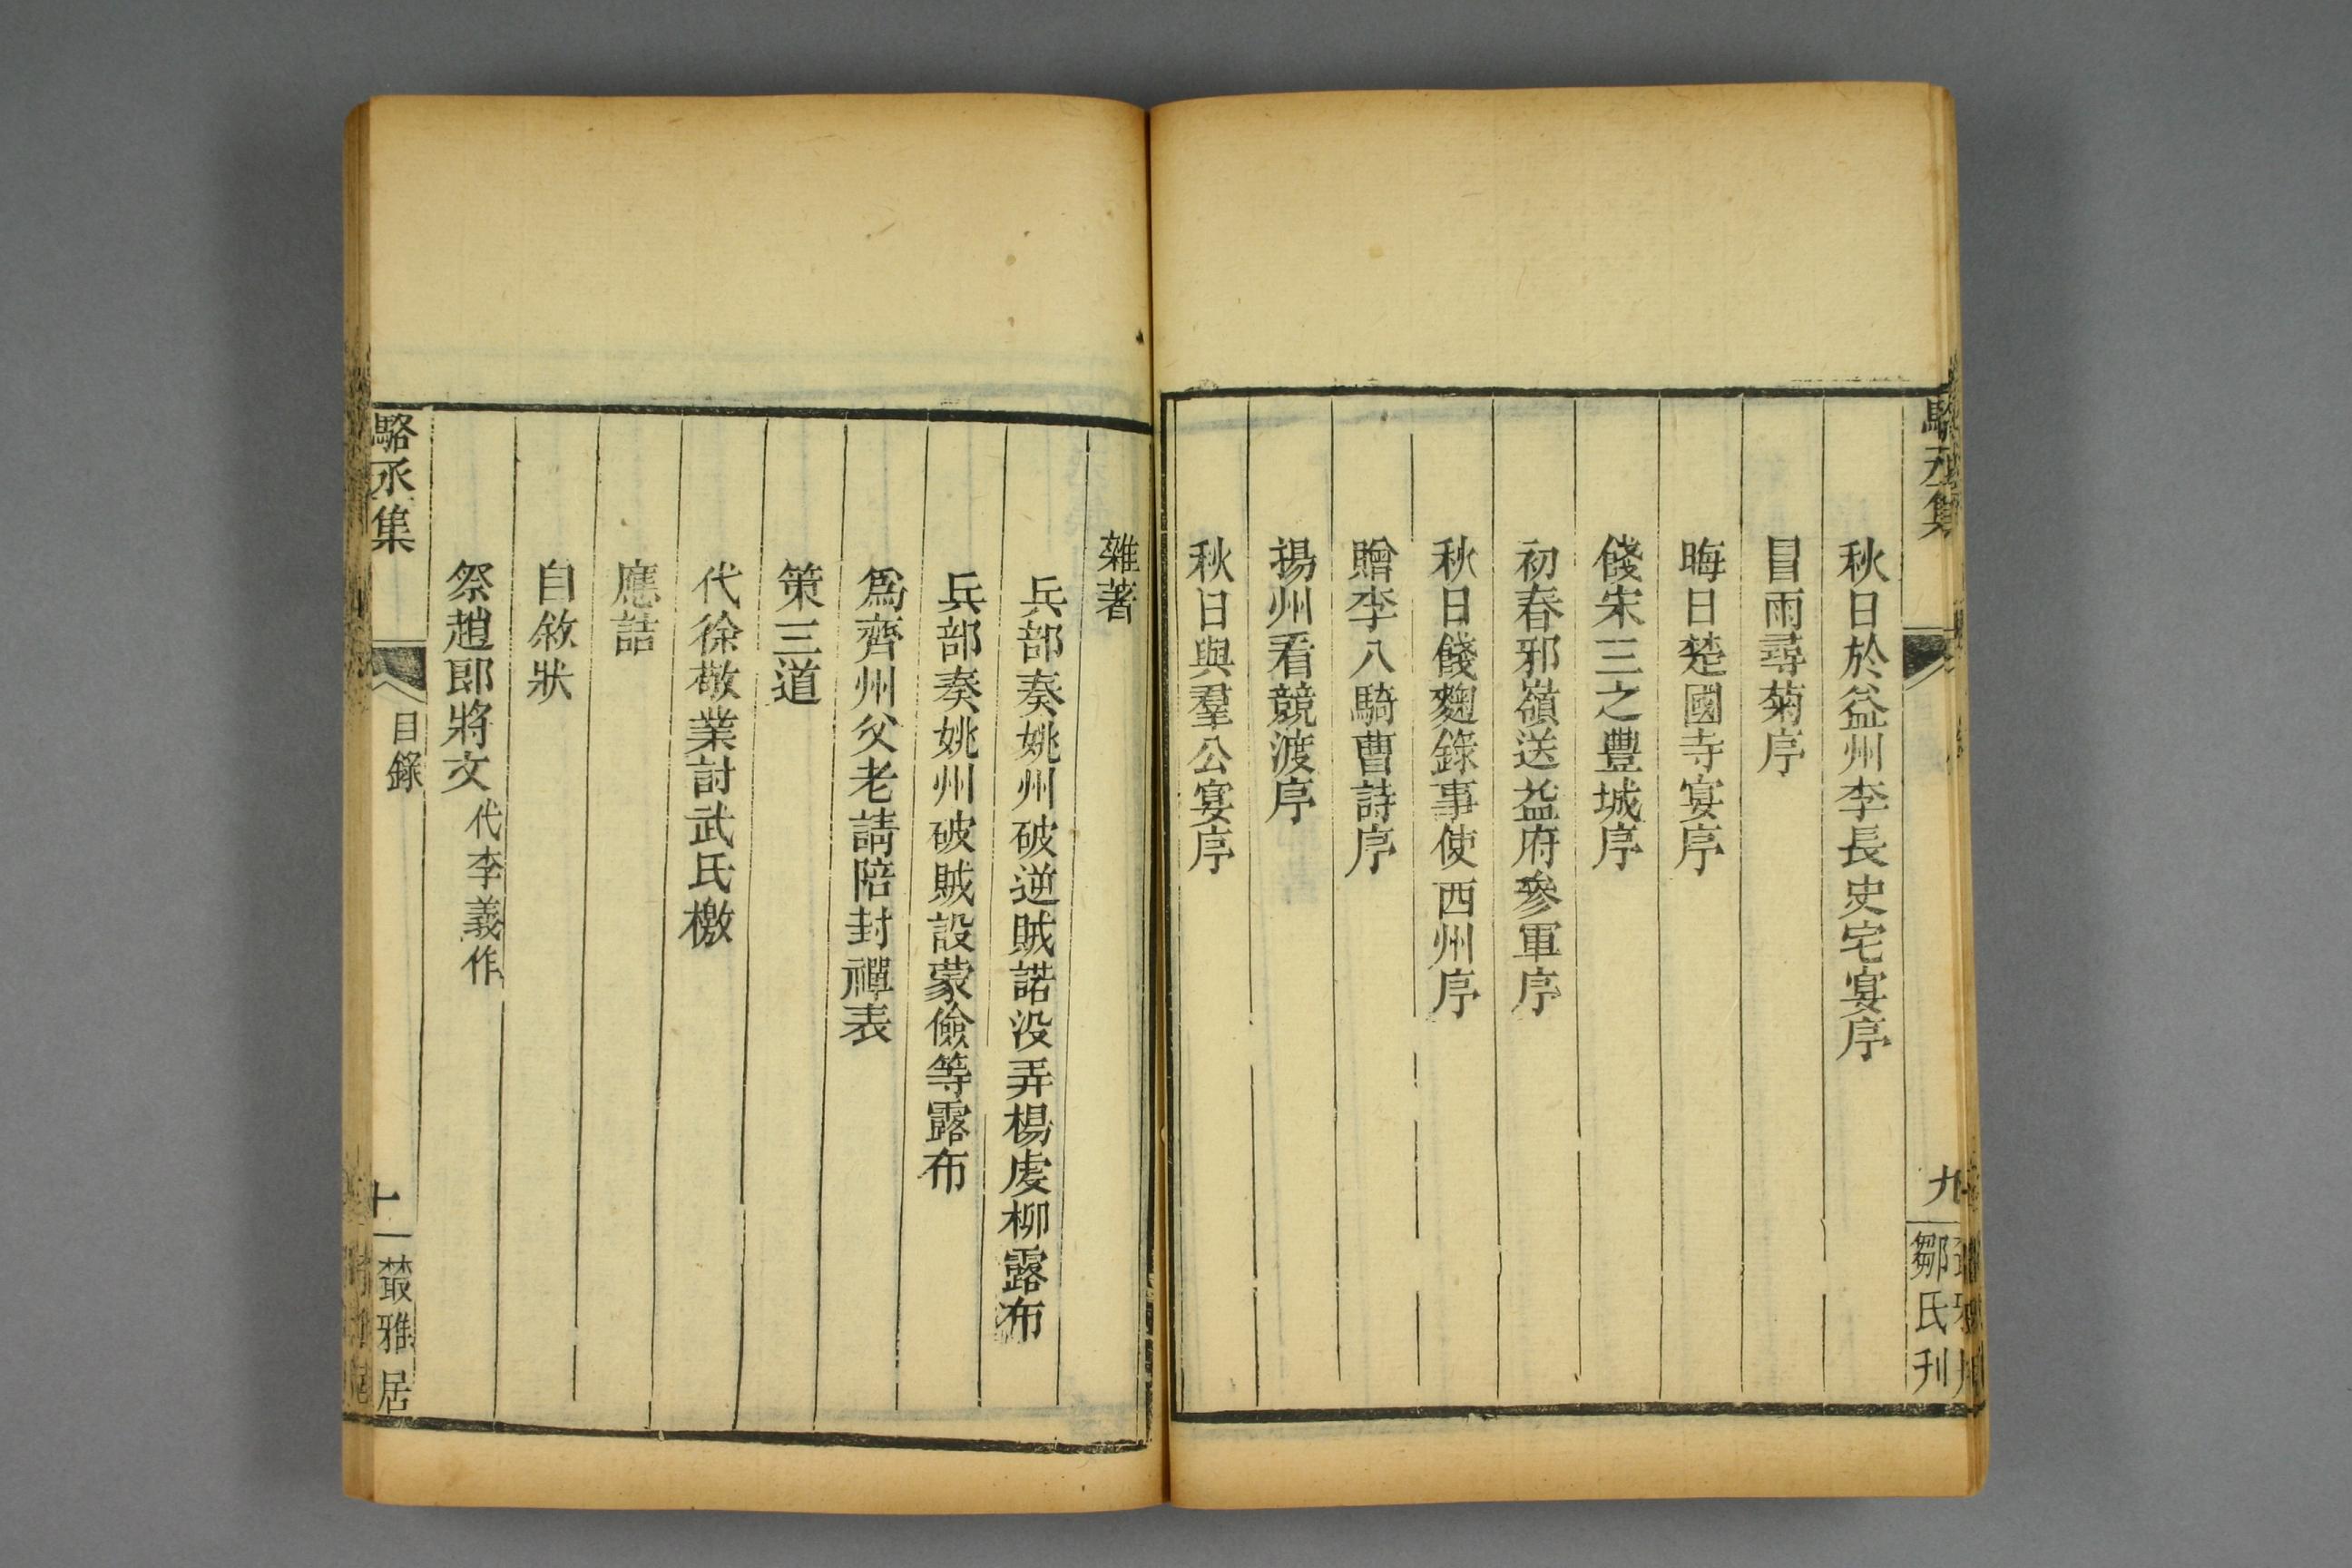 秋日於益州李長史宅宴序
冒雨尋菊序
晦日楚國寺宴序
餞宋三之豐城序
初春邪嶺送益府參軍序
秋日餞麴錄事使西州序
贈李八騎曹詩序
揚州看競渡序
秋日與羣公宴序
九
鄒氏刊
雜著
兵部奏姚州破逆賊諾没弄楊虔柳露布
兵部奏姚州破賊設蒙儉等露布
爲齊州父老請陪封禪表
策三道
代徐敬業討武氏檄
應詰
自敘狀
祭趙郎將文 代李義作
駱丞集
目錄
十
叢雅居